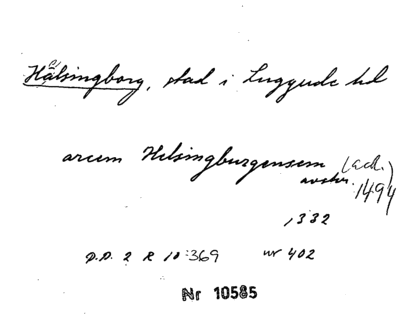 Hälsingborg, stad i Luggude hd
arcem Helsingburgensem (ack.)
avskr. 1494
1332
D.D. 2 R 10:369 nr 402
Nr 10585